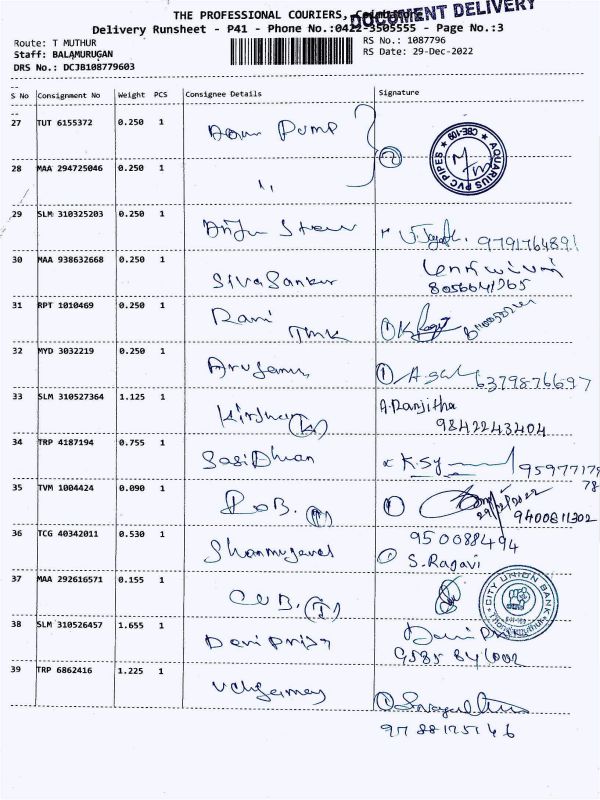 THE PROFESSIONAL COURIERS, Coimbatore
DOCUMENT DELIVERY
Delivery Runsheet - P41 - Phone No.:0422-3505555 - Page No.:3
Route: T MUTHUR
RS No.: 1087796
Staff: BALAMURUGAN
RS Date: 29-Dec-2022
DRS No.: DCJB108779603
S No Consignment No Weight PCS Consignee Details Signature
27 TUT 6155372 0.250 1 Pump
AQUARIUS PVC PIPES CBE-109
28 MAA 294725046 0.250 1 ,,
29 SLM 310325203 0.250 1
9791764891
30 MAA 938632668 0.250 1 SivaSankar
8056641765
31 RPT 1010469 0.250 1 Rani
TMK
32 MYD 3032219 0.250 1 Arugamu
6379876697
33 SLM 310527364 1.125 1
A.Ranjitha
9842243404
34 TRP 4187194 0.755 1 SasiDharan
35 TVM 1004424 0.090 1 B.O.B.
29/12/2022
9400811302
36 TCG 40342011 0.530 1 Shanmugavel
950088494
S. Ragavi
37 MAA 292616571 0.155 1 CUB. (T)
CITY UNION BANK
38 SLM 310526457 1.655 1 Devi priya
9585 841002
39 TRP 6862416 1.225 1
9788125146